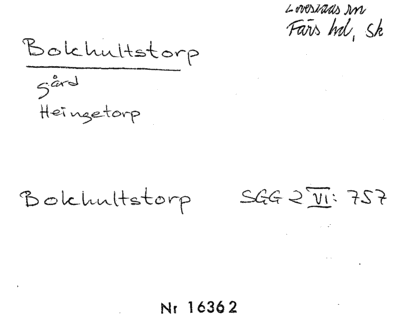 Lövestads sn
Färs hd, Sk
Bokhultstorp
gård
Heingetorp
Bokhultstorp SGG 2 VI: 757
Nr 16362